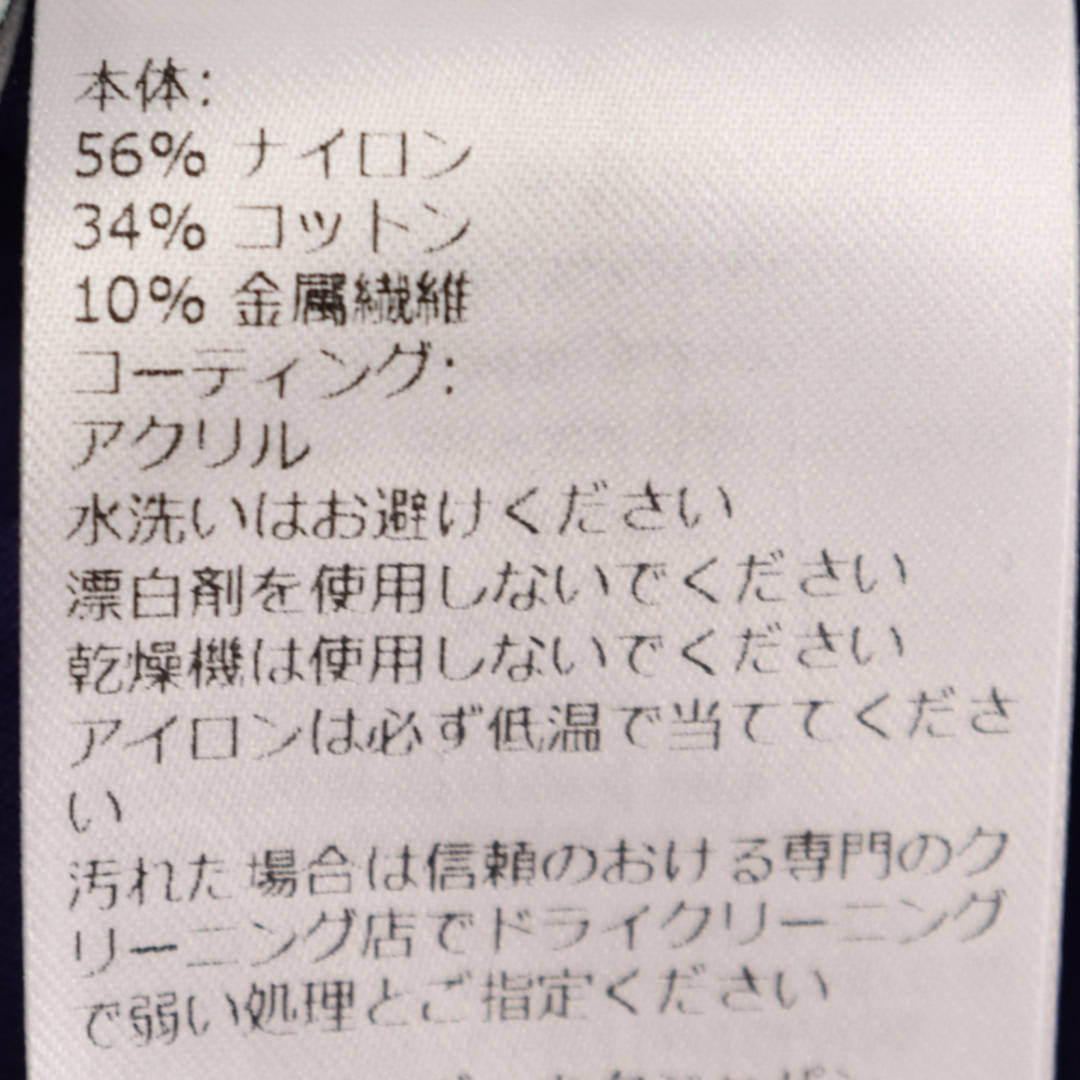 本体:
56% ナイロン
34% コットン
10% 金属繊維
コーティング:
アクリル
水洗いはお避けください
漂白剤を使用しないでください
乾燥機は使用しないでください
アイロンは必ず低温で当ててくださ
い
汚れた場合は信頼のおける専門のク
リーニング店でドライクリーニング
で弱い処理とご指定ください